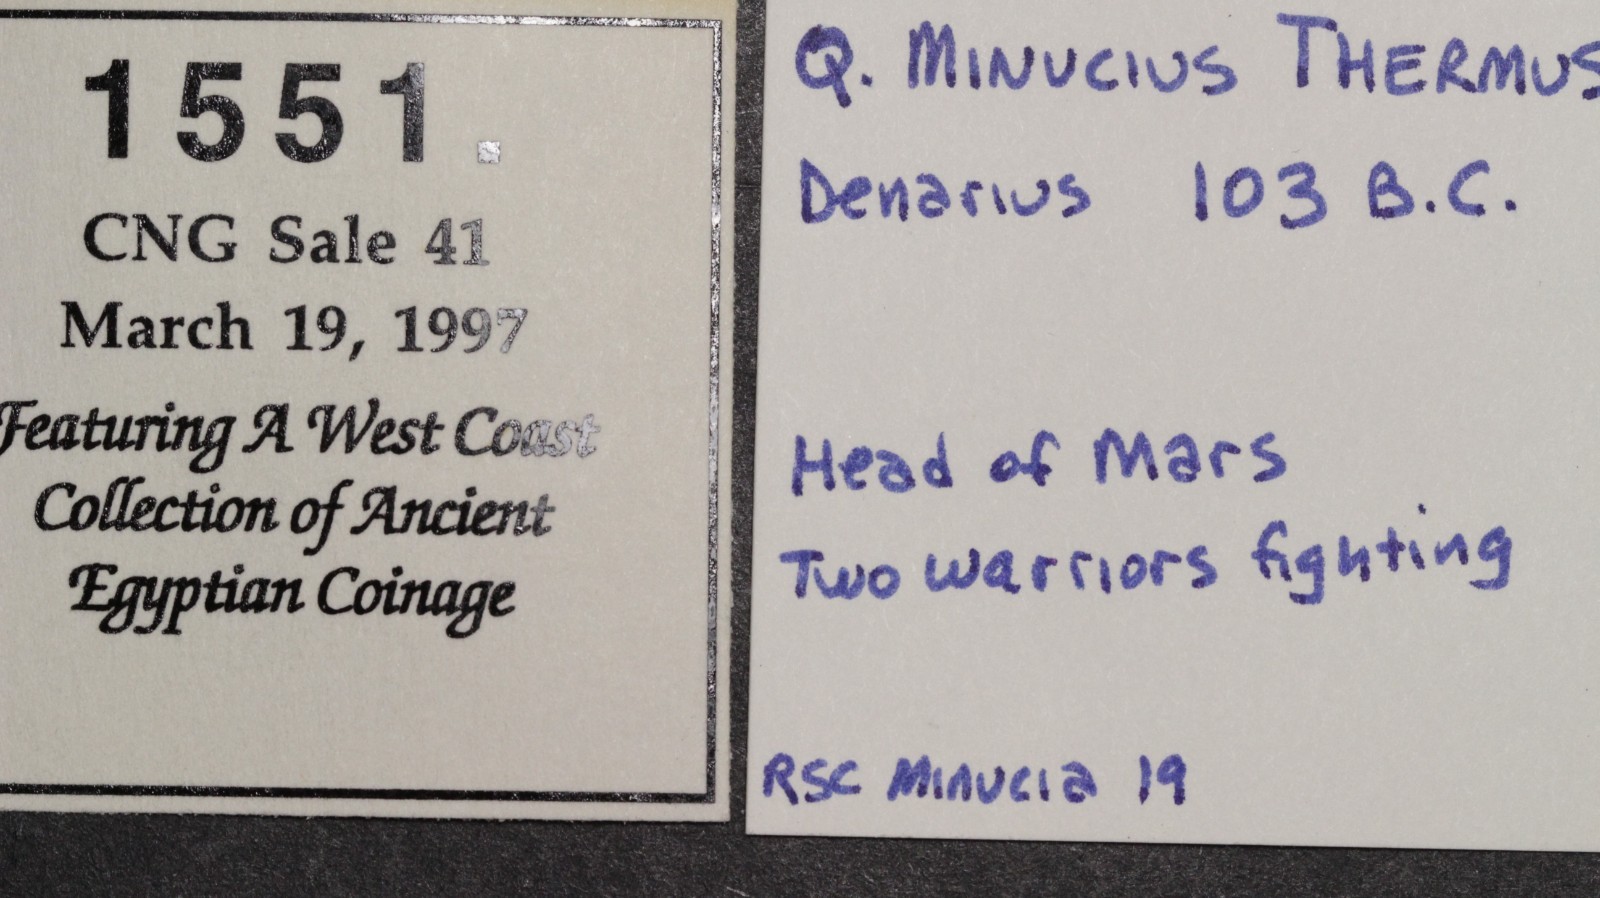 1551.
CNG Sale 41
March 19, 1997
Featuring A West Coast
Collection of Ancient
Egyptian Coinage
Q. MINUCIUS THERMUS
Denarius 103 B.C.
Head of Mars
Two warriors fighting
RSC Minucia 19